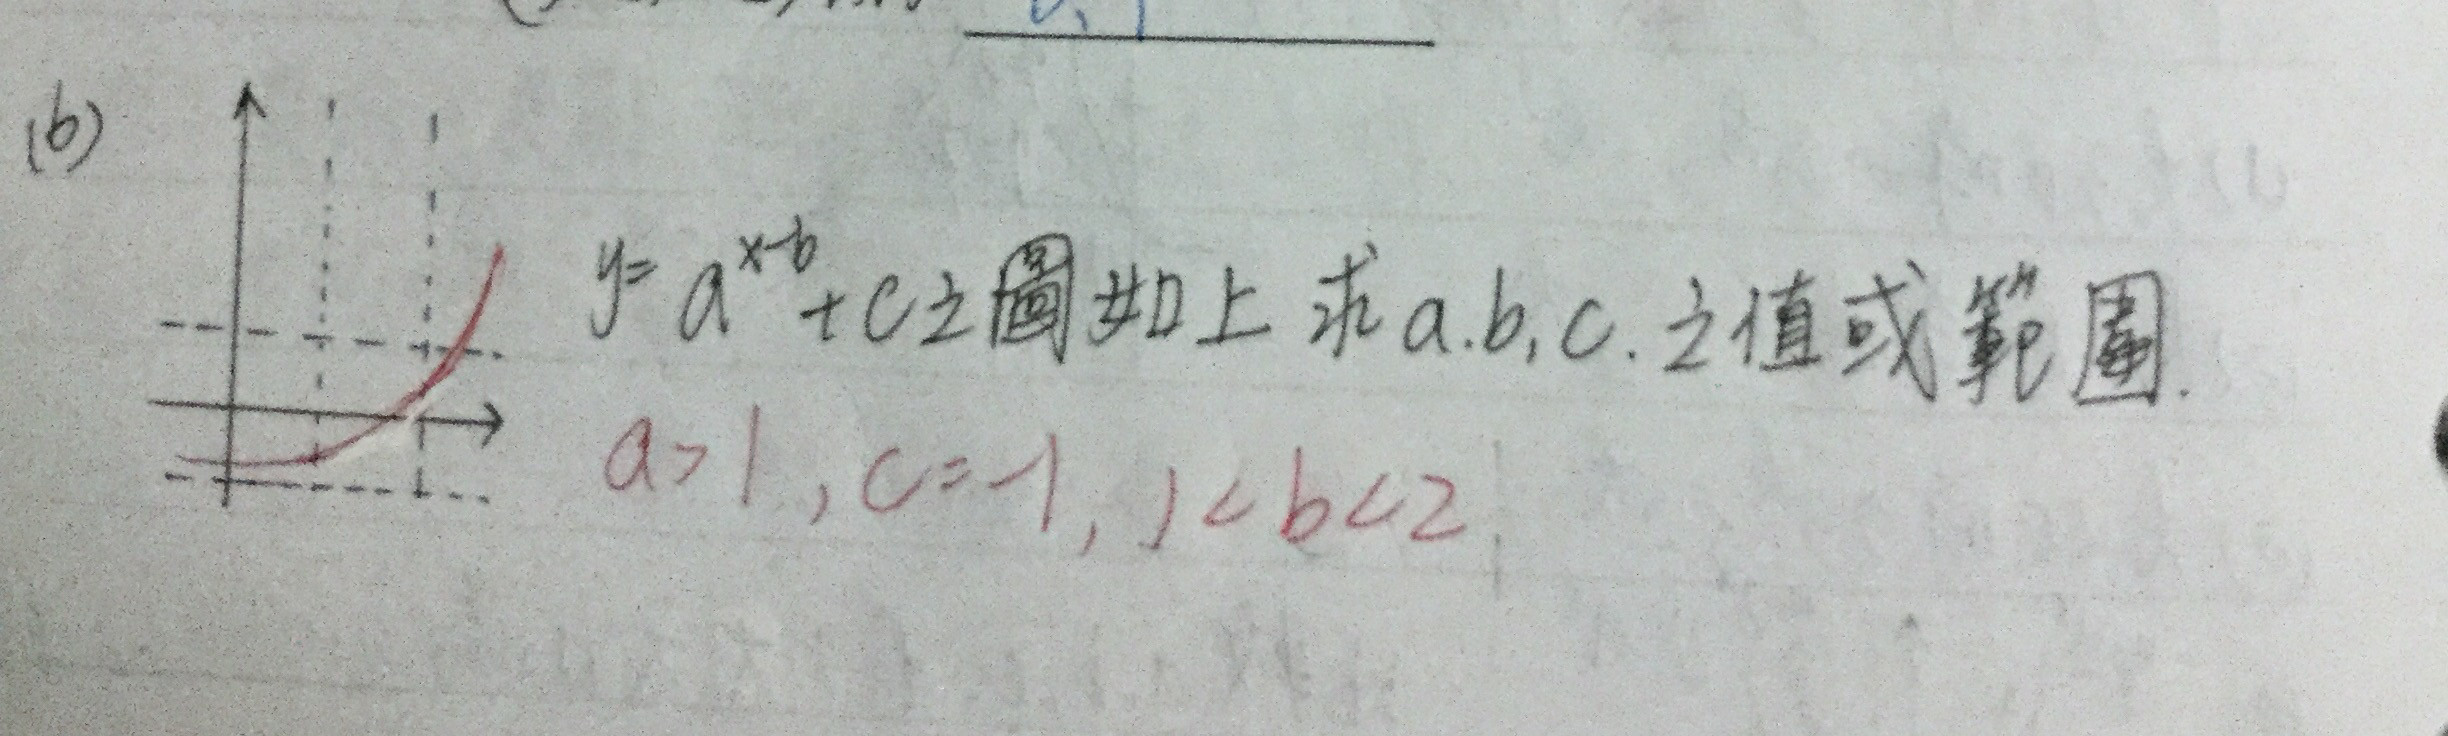 (b)
y=a^{x-b}+c之圖如上 求a.b,c.之值或範圍.
a>1, c=-1, 1<b<2